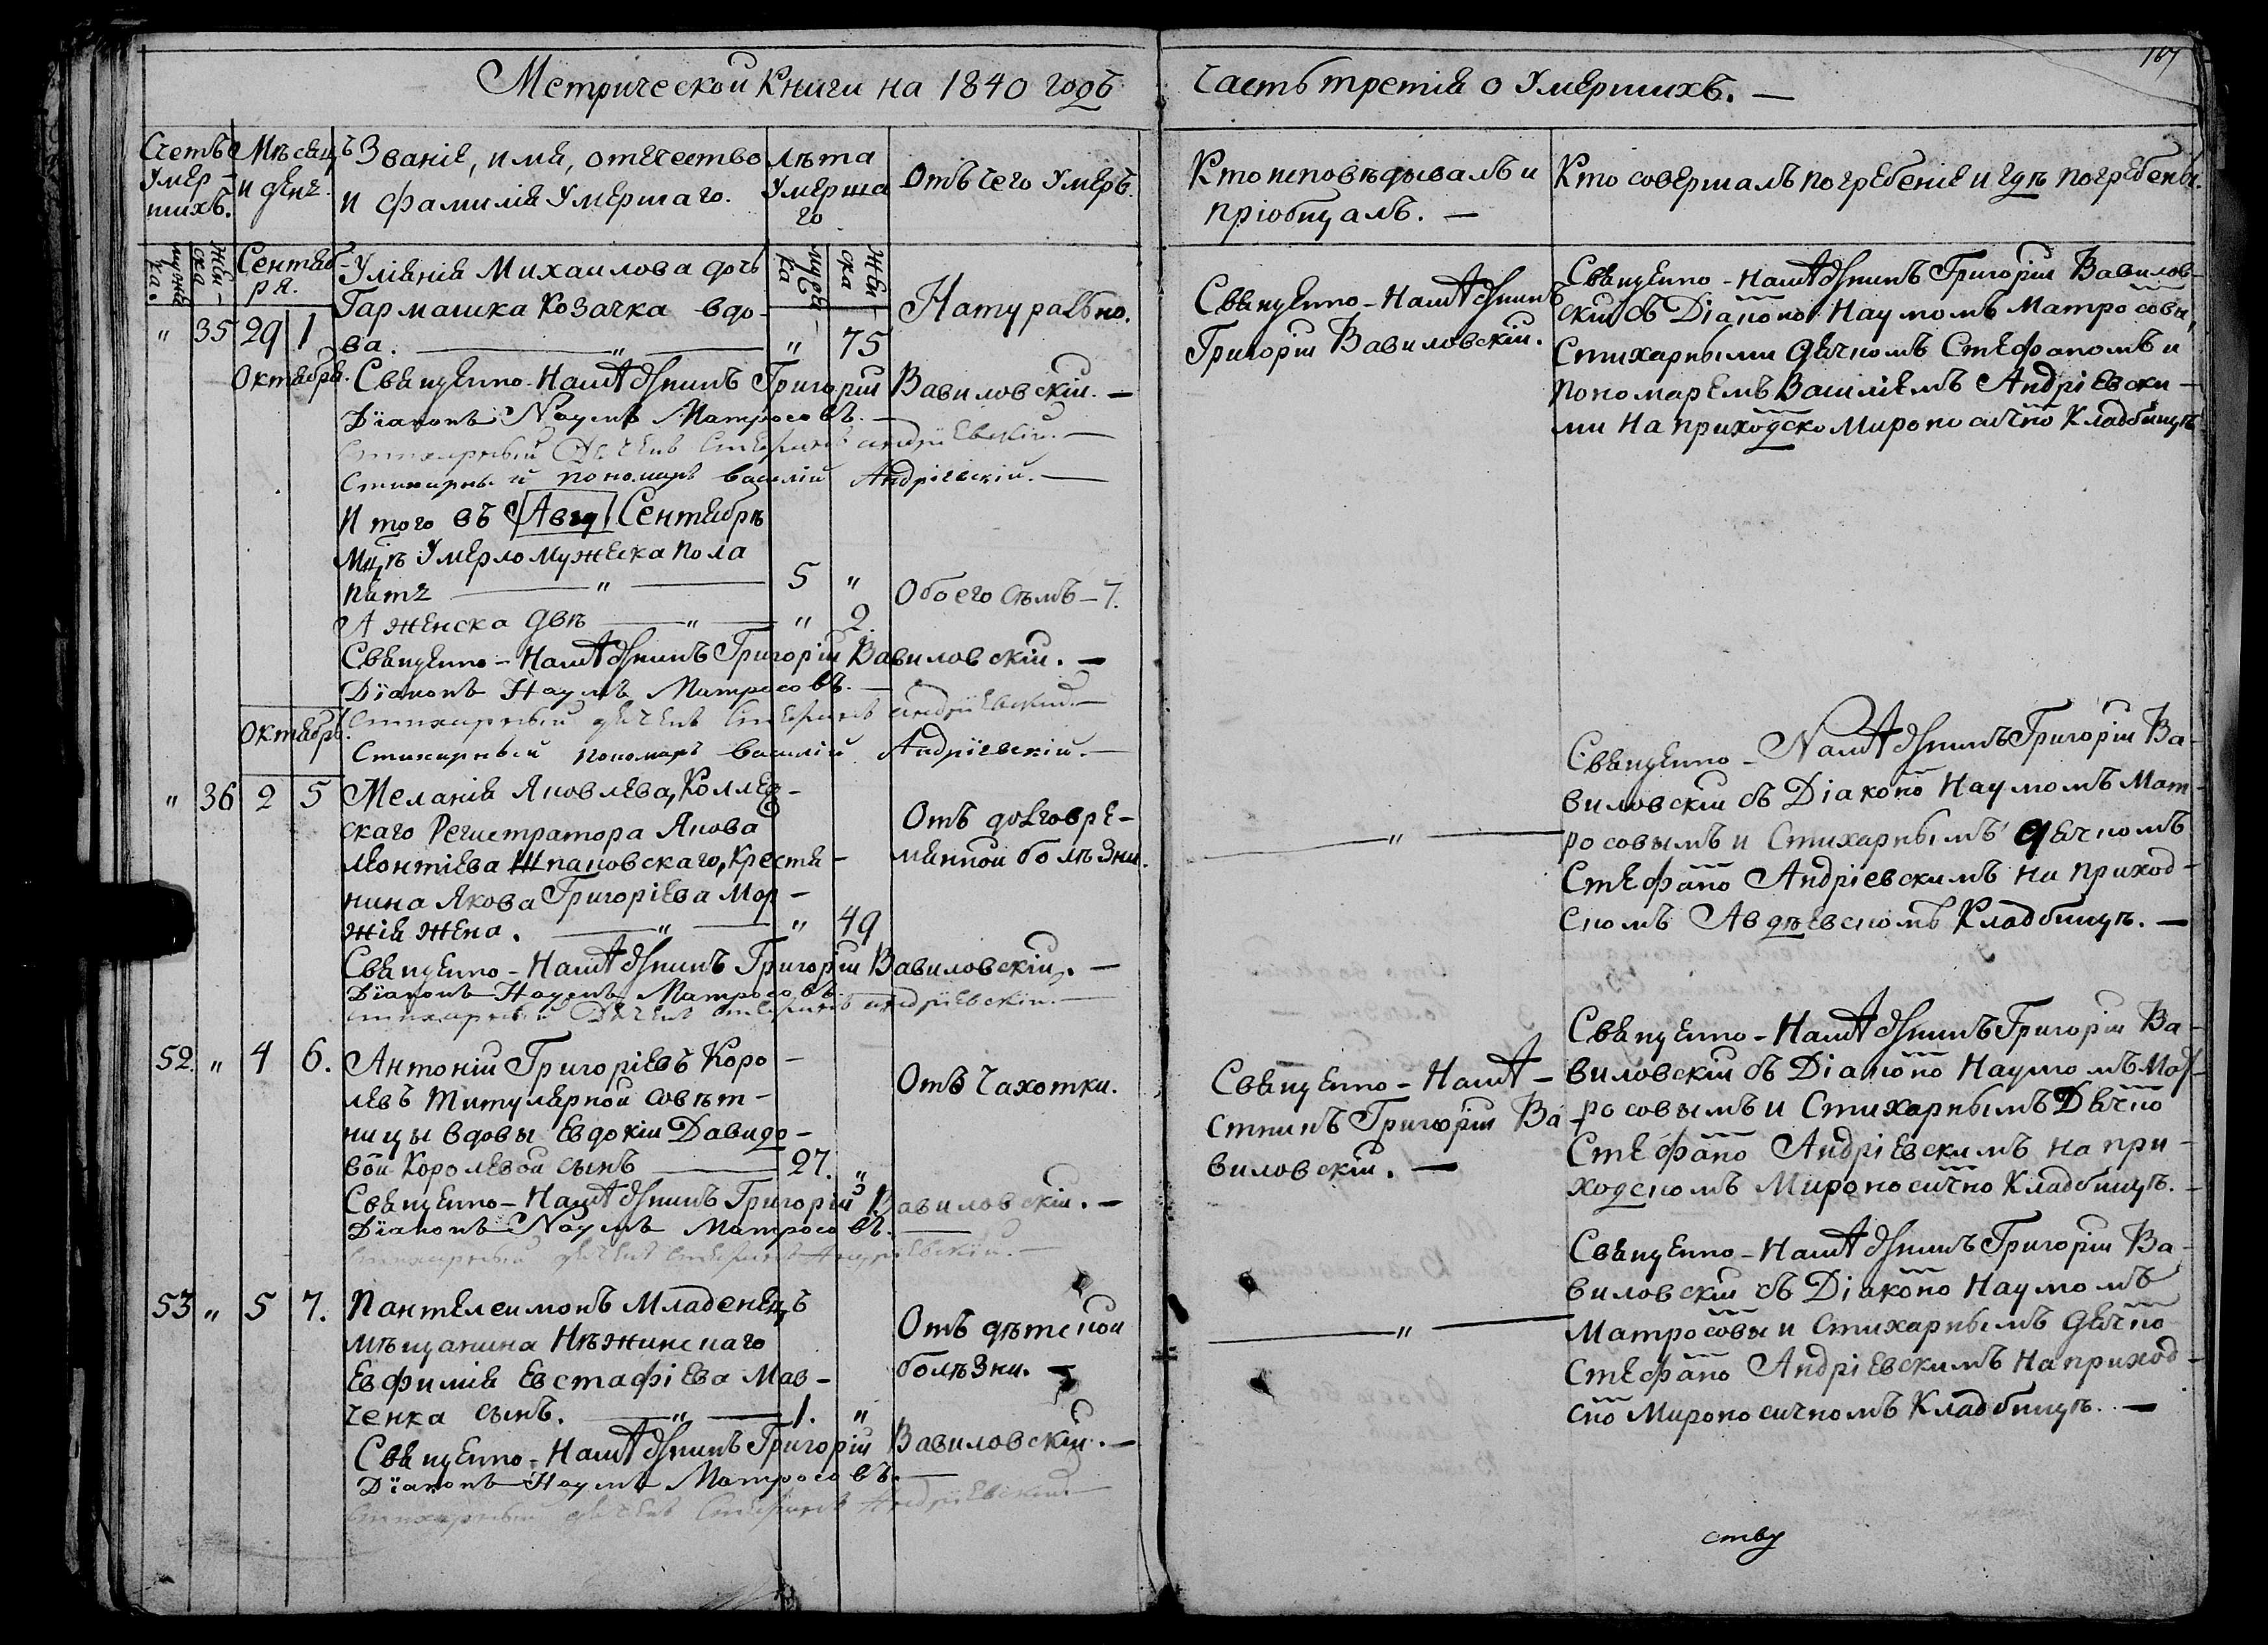 Метрической Книги на 1840 годъ
Часть третія о Умершихъ. —
167
Счетъ Умер-
шихъ.
Мѣсяцъ
и день.
Званіе, имя, отечество
и фамилія Умершаго.
лѣта
Умерша
го
Отъ чего Умеръ.
Кто исповѣдывалъ и
пріобщалъ. —
Кто совершалъ погребеніе и гдѣ погребены.
мужеска.
женска
Сентяб
ря.
мужека
Женска
" 35 29 1
Уліянія Михаилова дочь
Гармашка Козачка вдо-
ва. — " — " 75
Натурально.
Священно-
Григорій Вавиловскій.
Священно- Григорій Вавилов-
скій съ Діаконо Наумомъ Матросовы,
Стихарными Дячкомъ Стефаномъ и
пономаремъ Василіемъ Андріевски-
ми на приходско Мироносично Кладбищѣ
Октября.
Священно- Григорій Вавиловскій. —
Діаконъ Наумъ Матросовъ. —
Стихарный Дячекъ Стефанъ Андріевскій. —
Стихарный пономарь Василій Андріевскій. —
И того въ Авгу Сентябрѣ
Мцѣ Умерло Мужеска пола
пять — " — 5 "
А женска двѣ — " — " 2.
Обоего семъ — 7.
Священно- Григорій Вавиловскій. —
Діаконъ Наумъ Матросовъ. —
Стихарный дячекъ Стефанъ Андріевскій. —
Стихарный пономарь Василій Андріевскій. —
Октябр.
" 36 2 5
Меланія Яковлева, Коллеж-
скаго Регистратора Якова
Леонтіева Шпаковскаго, Крестя-
нина Якова Григоріева Мор-
жія жена. — " — " 49
Отъ долговре-
менной болѣзни.
— " —
Священно- Григорій Ва-
виловскій съ Діаконо Наумомъ Мат-
росовымъ и Стихарнымъ дячкомъ
Стефано Андріевскимъ на приход-
скомъ Авдѣевскомъ Кладбищѣ. —
Священно- Григорій Вавиловскій. —
Діаконъ Наумъ Матросовъ —
Стихарный Дячекъ Стефанъ Андріевскій. —
52. " 4 6.
Антоній Григоріевъ Коро-
левъ Титулярной Совѣт-
ницы вдовы Евдокіи Давидо-
вой Королевой сынъ — 27. "
Отъ Чахотки.
Священно-
Григорій Ва-
виловскій. —
Священно- Григорій Ва-
виловскій съ Діаконо Наумомъ Мат-
росовымъ и Стихарнымъ Дячко
Стефано Андріевскимъ на при-
ходскомъ Мироносично Кладбищѣ. —
Священно- Григорій Вавиловскій. —
Діаконъ Наумъ Матросовъ. —
Стихарный дячекъ Стефанъ Андріевскій. —
53 " 5 7.
Пантелеимонъ Младенецъ
мѣщанина Нѣжинскаго
Евфимія Евстафіева Мав-
ченка сынъ. — " — 1. "
Отъ дѣтской
болѣзни. —
— " —
Священно- Григорій Ва-
виловскій съ Діаконо Наумомъ
Матросовы и Стихарнымъ дячко
Стефано Андріевскимъ на приход-
ско Мироносичномъ Кладбищѣ. —
Священно- Григорій Вавиловскій. —
Діаконъ Наумъ Матросовъ. —
Стихарный дячекъ Стефанъ Андріевскій. —
ству